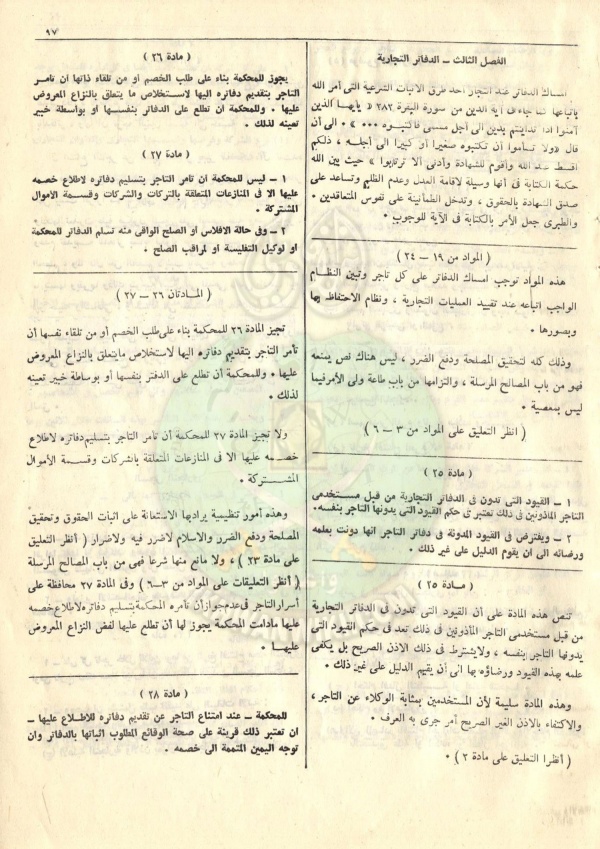 ٩٧
الفصل الثالث - الدفاتر التجارية
امساك الدفاتر عند التجار احد طرق الاثبات الشرعية التى أمر الله
باتباعها كما جاء فى آية الدين من سورة البقرة ٢٨٢ « يأيها الذين
آمنوا اذا تداينتم بدين الى أجل مسمى فاكتبوه ٠٠٠ » ٠ الى أن
قال « ولا تسأموا أن تكتبوه صغيرا أو كبيرا الى أجله ، ذلكم
أقسط عند الله وأقوم للشهادة وأدنى ألا ترتابوا » حيث بين الله
حكمة الكتابة فى أنها وسيلة لاقامة العدل وعدم الظلم وتساعد على
صدق الشهادة بالحقوق ، وتدخل الطمأنينة على نفوس المتعاقدين ٠
والطبرى جعل الأمر بالكتابة فى الآية للوجوب ٠
( المواد من ١٩ - ٢٤ )
هذه المواد توجب امساك الدفاتر على كل تاجر وتبين النظام
الواجب اتباعه عند تقييد العمليات التجارية ، ونظام الاحتفاظ بها
وبصورها ٠
وذلك كله لتحقيق المصلحة ودفع الضرر ، ليس هناك نص يمنعه
فهو من باب المصالح المرسلة ، والتزامها من باب طاعة ولى الأمر فيما
ليس بمعصية ٠
( انظر التعليق على المواد من ٣ - ٦ )
مادة ( ٢٥ )
١ - القيود التى تدون فى الدفاتر التجارية من قبل مستخدمى
التاجر المأذونين فى ذلك تعتبر فى حكم القيود التى يدونها التاجر بنفسه ٠
٢ - ويفترض فى القيود المدونة فى دفاتر التاجر انها دونت بعلمه
ورضائه الى ان يقوم الدليل على غير ذلك ٠
( مادة ٢٥ )
تنص هذه المادة على أن القيود التى تدون فى الدفاتر التجارية
من قبل مستخدمى التاجر المأذونين فى ذلك تعد فى حكم القيود التى
يدونها التاجر بنفسه ، ولا يشترط فى ذلك الاذن الصريح بل يكفى
علمه بهذه القيود ورضاؤه بها الى أن يقيم الدليل على غير ذلك ٠
وهذه المادة سليمة لأن المستخدمين بمثابة الوكلاء عن التاجر ،
والاكتفاء بالاذن الغير الصريح أمر جرى به العرف ٠
( أنظرا التعليق على مادة ٢ ) ٠
( مادة ٢٦ )
يجوز للمحكمة بناء على طلب الخصم أو من تلقاء ذاتها ان تامر
التاجر بتقديم دفاتره اليها لاستخلاص ما يتعلق بالنزاع المعروض
عليها ٠ وللمحكمة ان تطلع على الدفاتر بنفسها او بواسطة خبير
تعينه لذلك ٠
( مادة ٢٧ )
١ - ليس للمحكمة ان تامر التاجر بتسليم دفاتره لاطلاع خصمه
عليها الا فى المنازعات المتعلقة بالتركات والشركات وقسمة الأموال
المشتركة ٠
٢ - وفى حالة الافلاس أو الصلح الواقى منه تسلم الدفاتر للمحكمة
او لوكيل التفليسة أو لمراقب الصلح ٠
( المادتان ٢٦ - ٢٧ )
تجيز المادة ٢٦ للمحكمة بناء على طلب الخصم أو من تلقاء نفسها أن
تأمر التاجر بتقديم دفاتره اليها لاستخلاص ما يتعلق بالنزاع المعروض
عليها ٠ وللمحكمة أن تطلع على الدفتر بنفسها أو بوساطة خبير تعينه
لذلك ٠
ولا تجيز المادة ٢٧ للمحكمة أن تأمر التاجر بتسليم دفاتره لاطلاع
خصمه عليها الا فى المنازعات المتعلقة بالشركات وقسمة الأموال
المشتركة ٠
وهذه أمور تنظيمية يراد بها الاستعانة على اثبات الحقوق وتحقيق
المصلحة ودفع الضرر والاسلام لاضرر فيه ولاضرار ( أنظر التعليق
على مادة ٢٣ ) ، ولا مانع منها شرعا فهى من باب المصالح المرسلة
( أنظر التعليقات على المواد من ٣-٦ ) وفى المادة ٢٧ محافظة على
أسرار التاجر فى عدم جواز أن تأمره المحكمة بتسليم دفاتره لاطلاع خصمه
عليها مادامت المحكمة يجوز لها أن تطلع عليها لفض النزاع المعروض
عليها ٠
( مادة ٢٨ )
للمحكمة - عند امتناع التاجر عن تقديم دفاتره للاطلاع عليها -
ان تعتبر ذلك قرينة على صحة الوقائع المطلوب اثباتها بالدفاتر وان
توجه اليمين المتممة الى خصمه ٠